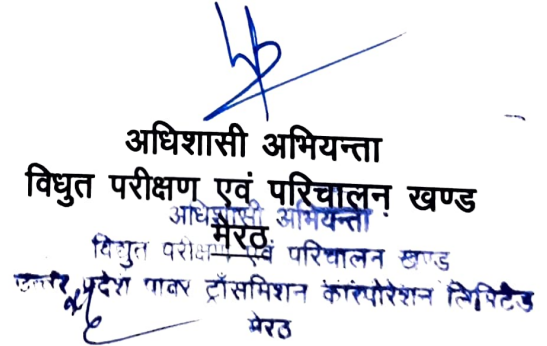 अधिशासी अभियन्ता
विधुत परीक्षण एवं परिचालन खण्ड
मेरठ
अधिशासी अभियन्ता
विद्युत परीक्षण एवं परिचालन खण्ड
उत्तर प्रदेश पावर ट्राँसमिशन कारपोरेशन लिमिटेड
मेरठ